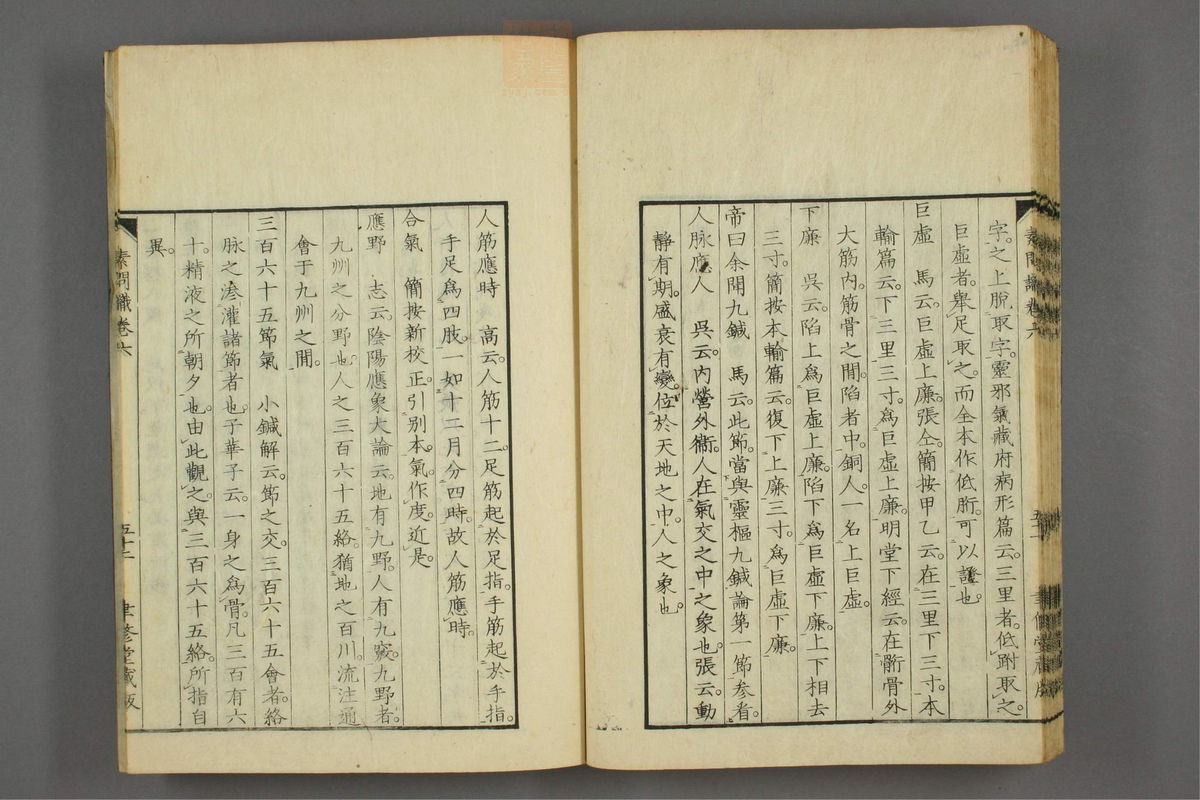 字之上脫取字。靈邪氣藏府病形篇云。三里者。低跗取之。
巨虛者。舉足取之。而全本作低胻。可以證也。
巨虛　馬云。巨虛上廉。張仝。簡按甲乙云。在三里下三寸。本
輸篇云。下三里三寸。爲巨虛上廉。明堂下經云。在䯒骨外
大筋內。筋骨之間陷者中。銅人。一名上巨虛。
下廉　吳云。陷上爲巨虛上廉。陷下爲巨虛下廉。上下相去
三寸。簡按本輸篇云。復下上廉三寸。爲巨虛下廉。
帝曰余聞九鍼　馬云。此節。當與靈樞九鍼論第一節參看。
人脉應人　吳云。內營外衞。人在氣交之中之象也。張云。動
靜有期。盛衰有變。位於天地之中。人之象也。
素問識卷六
人筋應時　高云。人筋十二。足筋起於足指。手筋起於手指。
手足爲四肢。一如十二月分四時。故人筋應時。
合氣　簡按新校正。引别本。氣作度。近是。
應野　志云。陰陽應象大論云。地有九野。人有九竅。九野者。
九州之分野也。人之三百六十五絡。猶地之百川。流注通
會于九州之間。
三百六十五節氣　小鍼解云。節之交。三百六十五會者。絡
脉之滲灌諸節者也。子華子云。一身之爲骨。凡三百有六
十。精液之所朝夕也。由此觀之。與三百六十五絡。所指自
異。
素問識卷六
五十二
聿修堂藏版